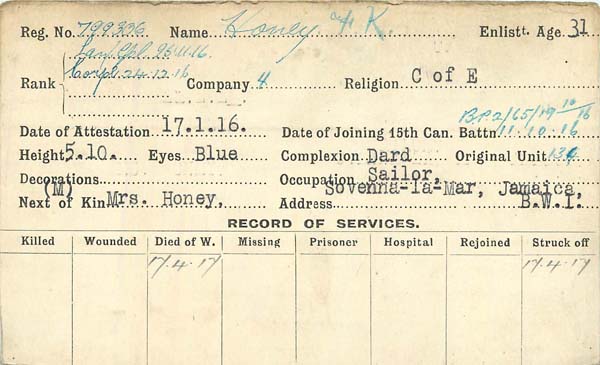 Reg. No. 799336 Name Honey, F K. Enlistt. Age 31
Lan/Cpl 26.11.16
Rank Corpl 24.12.16 Company 4 Religion C of E
B.P.2/65/19 10/16
Date of Attestation 17.1.16. Date of Joining 15th Can. Battn 11.10.16
Height 5.10. Eyes Blue Complexion Dard Original Unit 134
Decorations Occupation Sailor,
(M) Sovenna-la-Mar, Jamaica,
Next of Kin Mrs. Honey, Address B.W.I.
RECORD OF SERVICES.
Killed Wounded Died of W. Missing Prisoner Hospital Rejoined Struck off
17.4.17 17.4.17